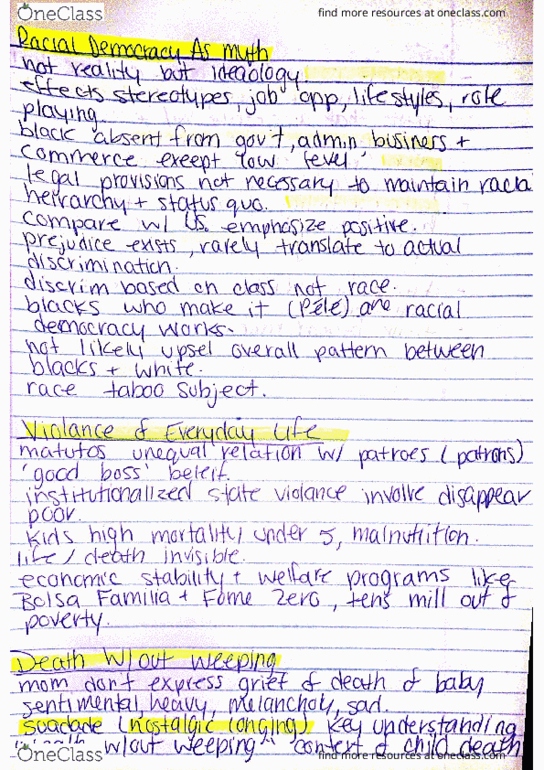 OneClass
find more resources at oneclass.com
Racial Democracy As myth
not reality but ideology
effects stereotypes, job app, lifestyles, role
playing.
black absent from gov't, admin, business +
commerce except low level
legal provisions not necessary to maintain racia
heirarchy + status quo.
compare w/ US. emphasize positive.
prejudice exists, rarely translate to actual
discrimination.
discrim based on class not race.
blacks who make it (Pele) are racial
democracy works.
not likely upset overall pattern between
blacks + white.
race taboo subject.
Violance of Everyday Life
matutos unequal relation w/ patroes (patrons)
'good boss' beleif.
institutionalized state violance involve disappear
poor.
kids high mortality under 5, malnutrition.
life / death invisible.
economic stability + welfare programs like
Bolsa Familia + Fome Zero, tens mill out of
poverty.
Death W/out weeping
mom don't express grief of death of baby
sentimental, heavy, melancholy, sad.
(nostalgic longing) key understanding
w/out weeping" context of child death
OneClass
find more resources at oneclass.com